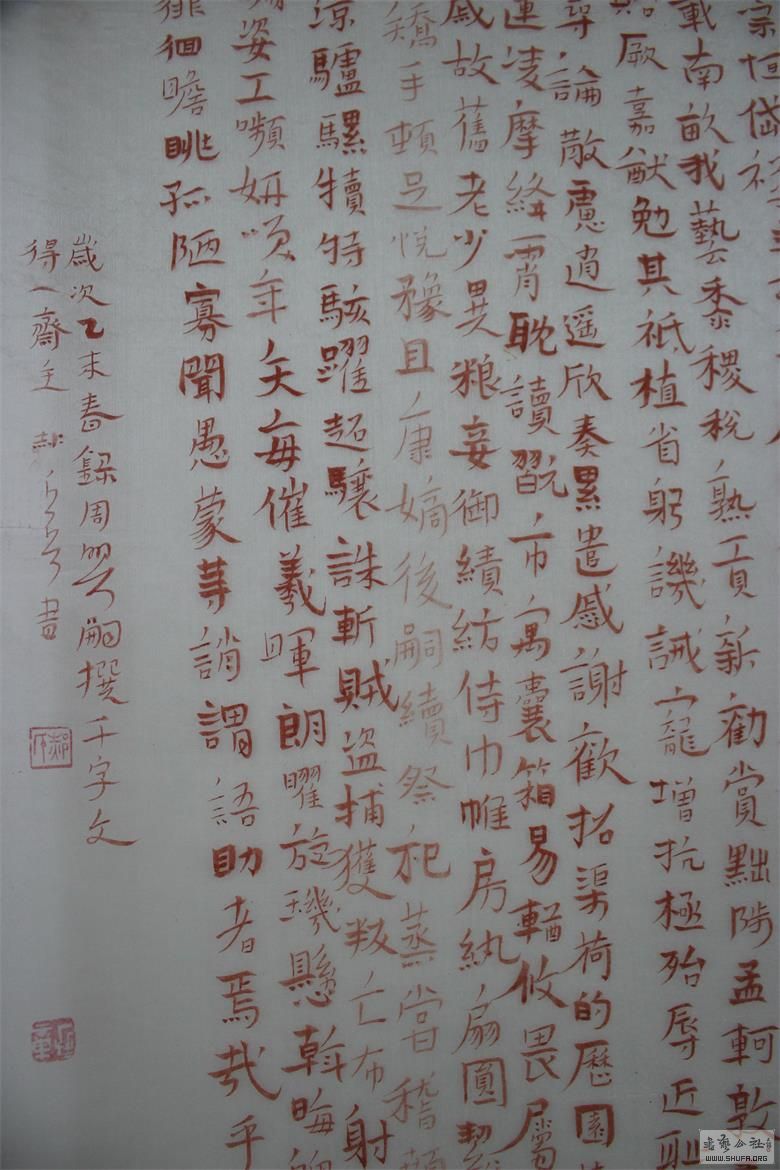 宗恒岱禪
載南畝我藝黍稷稅熟貢新勸賞黜陟孟軻敦
貽厥嘉猷勉其祗植省躬譏誡寵增抗極殆辱近恥
尋論散慮逍遥欣奏累遣慼謝歡招渠荷的歷園
運凌摩絳霄耽讀翫市寓囊箱易輶攸畏屬
戚故舊老少異粮妾御績紡侍巾帷房紈扇圓潔
矯手頓足悅豫且康嫡後嗣續祭祀蒸嘗稽顙
涼驢騾犢特駭躍超驤誅斬賊盜捕獲叛亡布射
姿工嚬妍笑年矢每催羲暉朗曜旋璣懸斡晦魄
徘徊瞻眺孤陋寡聞愚蒙等誚謂語助者焉哉乎
歲次乙未春錄周興嗣撰千字文
得一齋主 郝 書
書藝公社
WWW.SHUFA.ORG